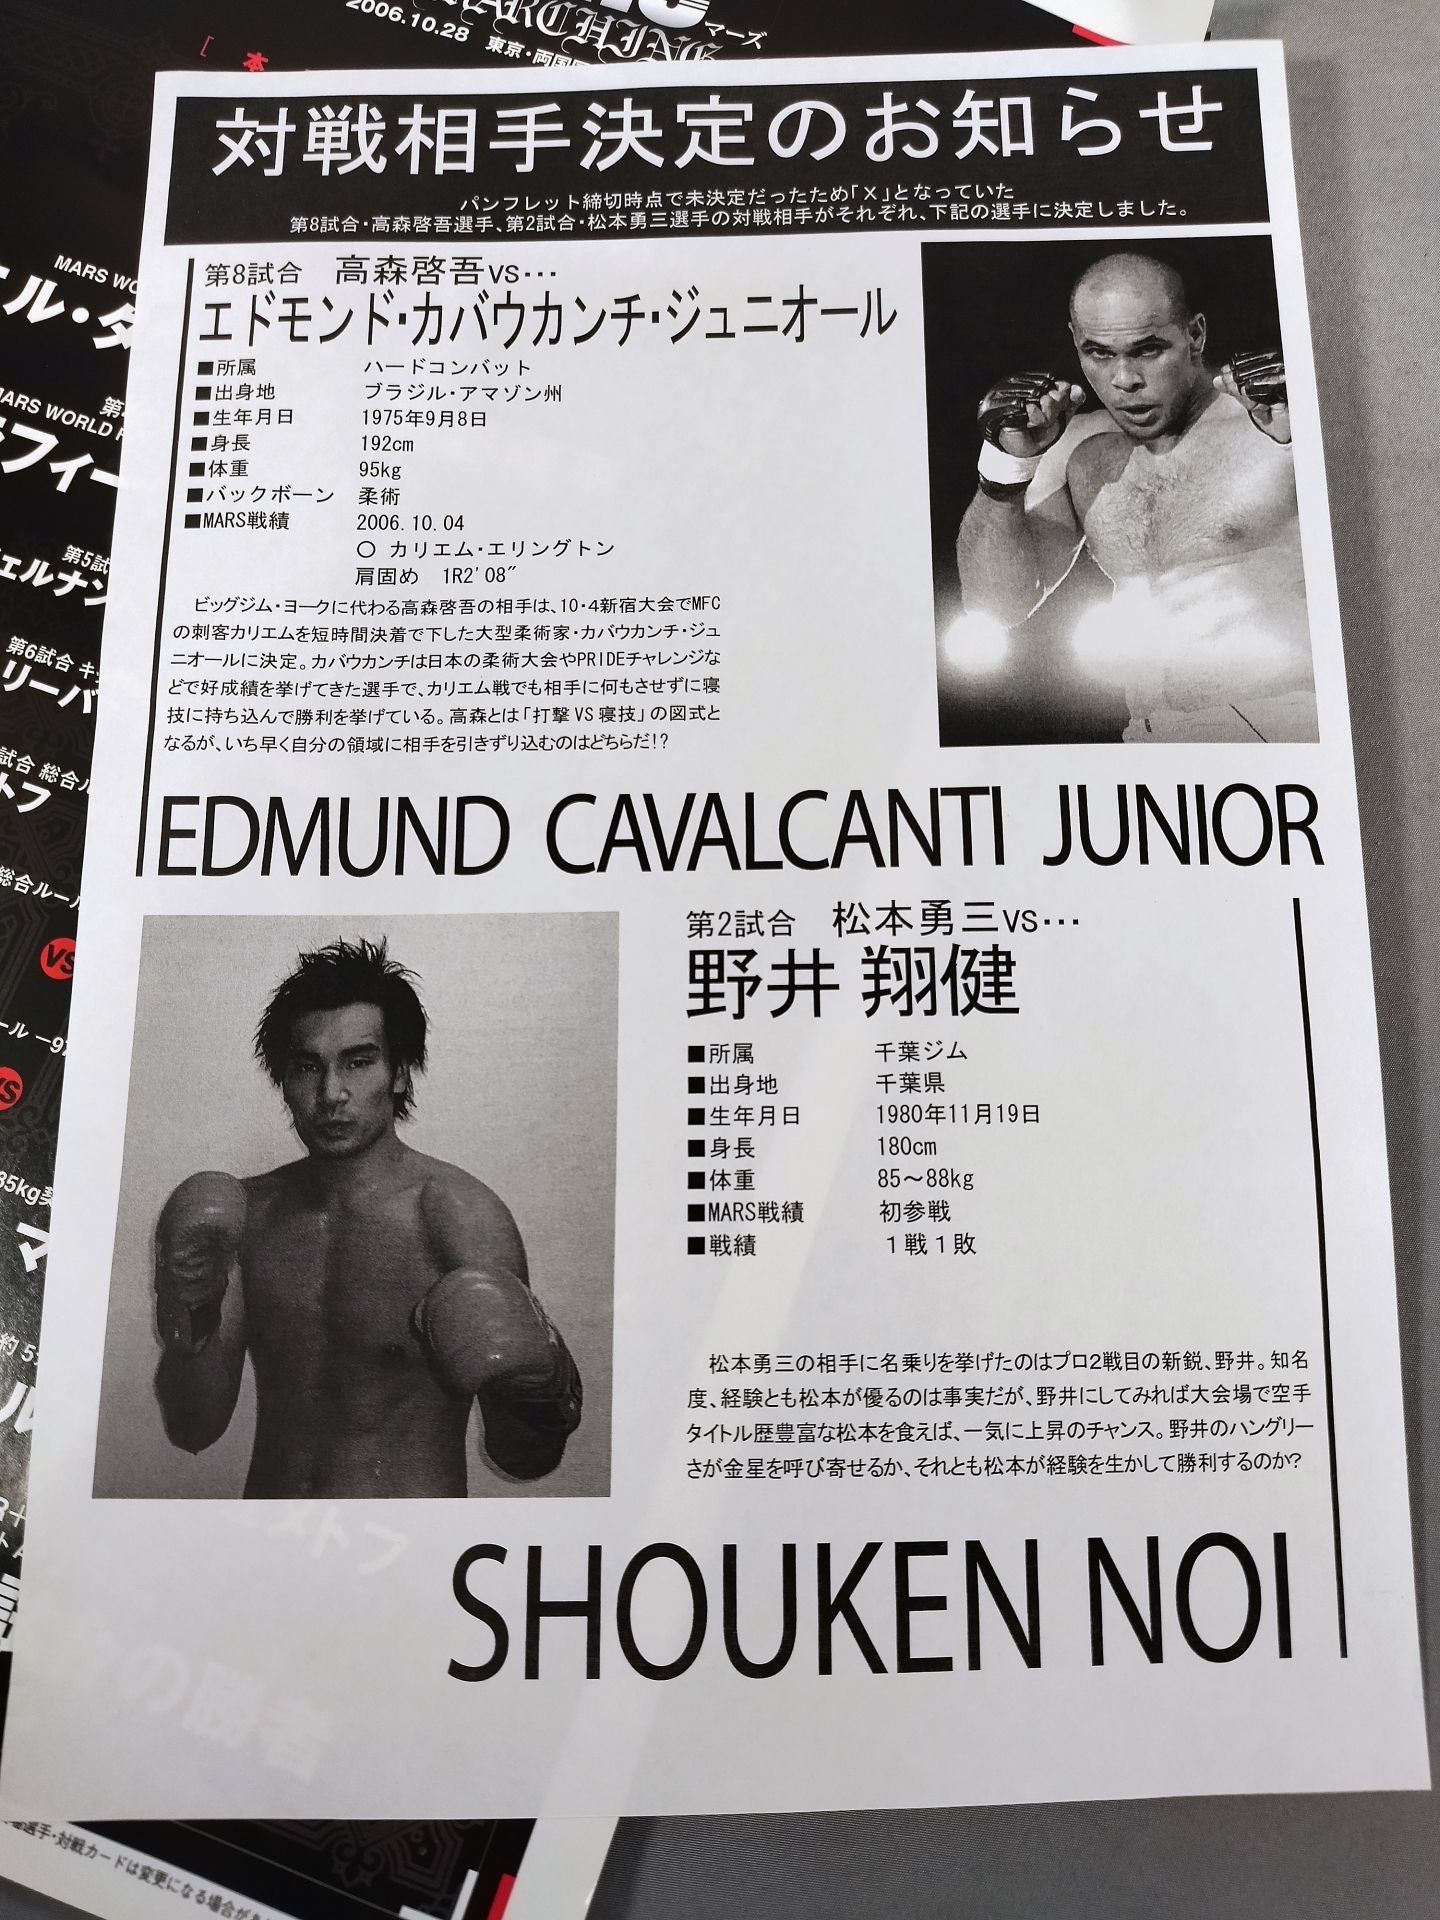 2006.10.28 東京・両国
MARCHING
マーズ
[ 本
対戦相手決定のお知らせ
パンフレット締切時点で未決定だったため「X」となっていた
第8試合・高森啓吾選手、第2試合・松本勇三選手の対戦相手がそれぞれ、下記の選手に決定しました。
第8試合 高森啓吾vs…
エドモンド・カバウカンチ・ジュニオール
■所属 ハードコンバット
■出身地 ブラジル・アマゾン州
■生年月日 1975年9月8日
■身長 192cm
■体重 95kg
■バックボーン 柔術
■MARS戦績 2006.10.04
○ カリエム・エリングトン
肩固め 1R2'08"
ビッグジム・ヨークに代わる高森啓吾の相手は、10・4新宿大会でMFC
の刺客カリエムを短時間決着で下した大型柔術家・カバウカンチ・ジュ
ニオールに決定。カバウカンチは日本の柔術大会やPRIDEチャレンジな
どで好成績を挙げてきた選手で、カリエム戦でも相手に何もさせずに寝
技に持ち込んで勝利を挙げている。高森とは「打撃VS寝技」の図式と
なるが、いち早く自分の領域に相手を引きずり込むのはどちらだ!?
EDMUND CAVALCANTI JUNIOR
第2試合 松本勇三vs…
野井 翔健
■所属 千葉ジム
■出身地 千葉県
■生年月日 1980年11月19日
■身長 180cm
■体重 85～88kg
■MARS戦績 初参戦
■戦績 1戦1敗
松本勇三の相手に名乗りを挙げたのはプロ2戦目の新鋭、野井。知名
度、経験とも松本が優るのは事実だが、野井にしてみれば大会場で空手
タイトル歴豊富な松本を食えば、一気に上昇のチャンス。野井のハングリー
さが金星を呼び寄せるか、それとも松本が経験を生かして勝利するのか?
SHOUKEN NOI
の勝者
選手・対戦カードは変更になる場合が